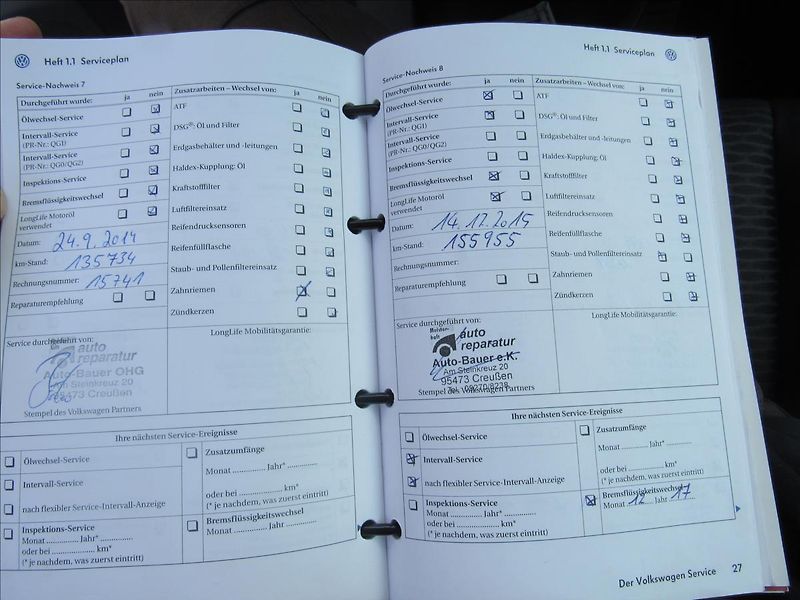 Heft 1.1 Serviceplan
Service-Nachweis 7
Durchgeführt wurde: ja nein
Ölwechsel-Service
Intervall-Service
(PR-Nr.: QG1)
Intervall-Service
(PR-Nr.: QG0/QG2)
Inspektions-Service
Bremsflüssigkeitswechsel
LongLife Motoröl
verwendet
Datum: 24.9.2014
km-Stand: 135734
Rechnungsnummer: 15741
Reparaturempfehlung
Zusatzarbeiten – Wechsel von: ja nein
ATF
DSG®: Öl und Filter
Erdgasbehälter und -leitungen
Haldex-Kupplung: Öl
Kraftstofffilter
Luftfiltereinsatz
Reifendrucksensoren
Reifenfüllflasche
Staub- und Pollenfiltereinsatz
Zahnriemen
Zündkerzen
Service durchgeführt von:
auto
reparatur
Auto-Bauer OHG
Am Steinkreuz 20
95473 Creußen
Stempel des Volkswagen Partners
LongLife Mobilitätsgarantie:
Ihre nächsten Service-Ereignisse
Ölwechsel-Service
Intervall-Service
nach flexibler Service-Intervall-Anzeige
Inspektions-Service
Monat .............. Jahr* ..............
oder bei .................. km*
(* je nachdem, was zuerst eintritt)
Zusatzumfänge
Monat .............. Jahr* ..............
oder bei .................. km*
(* je nachdem, was zuerst eintritt)
Bremsflüssigkeitswechsel
Monat .............. Jahr ..............
Heft 1.1 Serviceplan
Service-Nachweis 8
Durchgeführt wurde: ja nein
Ölwechsel-Service
Intervall-Service
(PR-Nr.: QG1)
Intervall-Service
(PR-Nr.: QG0/QG2)
Inspektions-Service
Bremsflüssigkeitswechsel
LongLife Motoröl
verwendet
Datum: 14.12.2015
km-Stand: 155955
Rechnungsnummer:
Reparaturempfehlung
Zusatzarbeiten – Wechsel von: ja nein
ATF
DSG®: Öl und Filter
Erdgasbehälter und -leitungen
Haldex-Kupplung: Öl
Kraftstofffilter
Luftfiltereinsatz
Reifendrucksensoren
Reifenfüllflasche
Staub- und Pollenfiltereinsatz
Zahnriemen
Zündkerzen
Service durchgeführt von:
Meister-
haft
auto
reparatur
Auto-Bauer e.K.
Am Steinkreuz 20
95473 Creußen
Tel. 09270/8238
Stempel des Volkswagen Partners
LongLife Mobilitätsgarantie:
Ihre nächsten Service-Ereignisse
Ölwechsel-Service
Intervall-Service
nach flexibler Service-Intervall-Anzeige
Inspektions-Service
Monat .............. Jahr* ..............
oder bei .................. km*
(* je nachdem, was zuerst eintritt)
Zusatzumfänge
Monat .............. Jahr* ..............
oder bei .................. km*
(* je nachdem, was zuerst eintritt)
Bremsflüssigkeitswechsel
Monat 12 Jahr 17
Der Volkswagen Service 27